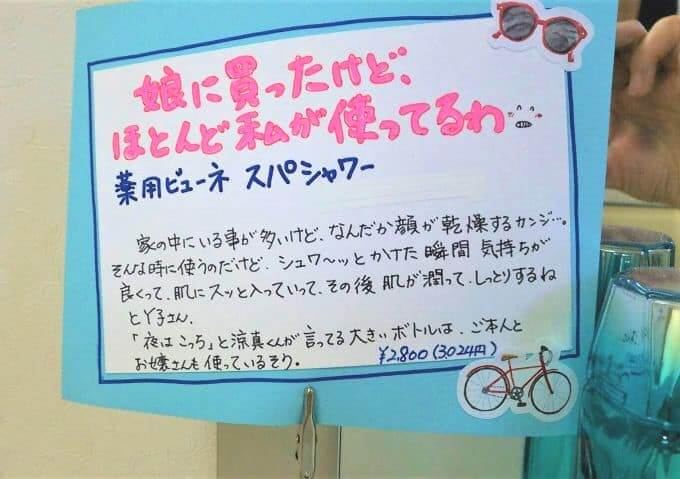 娘に買ったけど、
ほとんど私が使ってるわ
薬用ビューネ スパシャワー
家の中にいる事が多いけど、なんだか顔が乾燥するカンジ…。
そんな時に使うのだけど、シュワ〜ッとかけた瞬間 気持ちが
良くって、肌にスッと入っていって、その後 肌が潤って、しっとりするね
とY子さん.
「夜はこっち」と涼真くんが言ってる大きいボトルは、ご本人と
お嬢さんも使っているそり。
¥2,800(3024円)